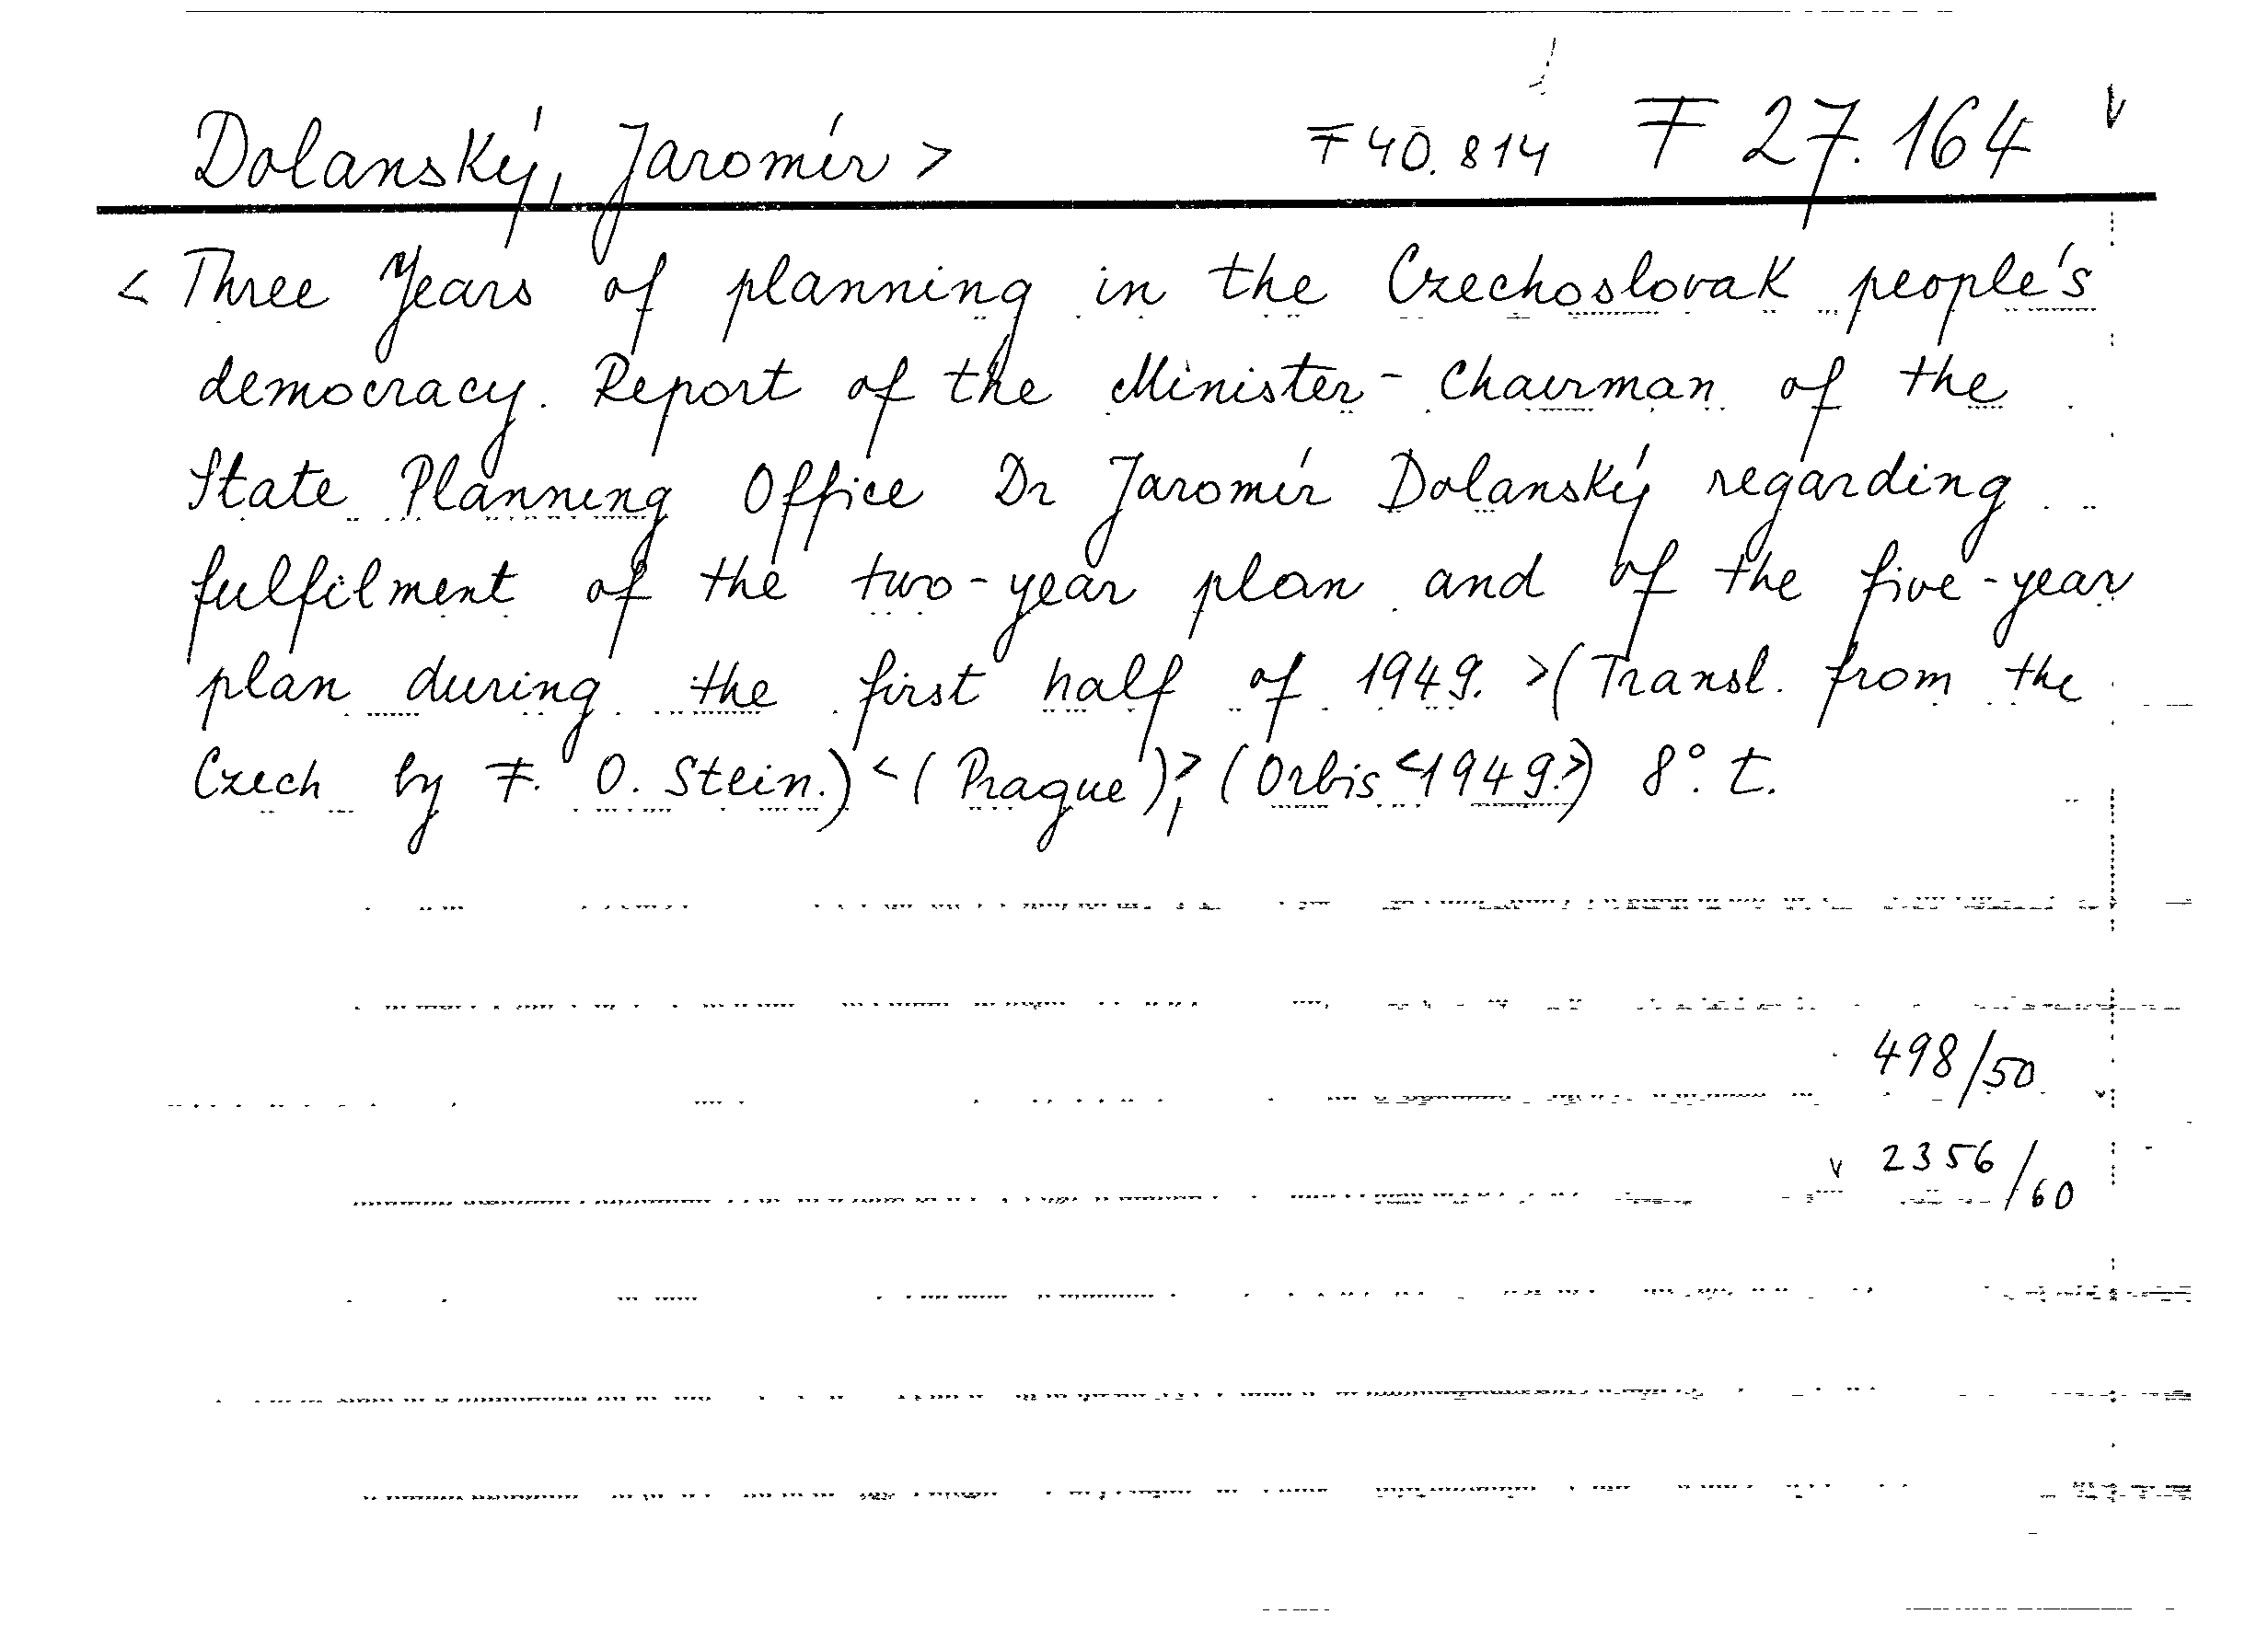 Dolanský, Jaromír > F 40.814 F 27.164
< Three Years of planning in the Czechoslovak people's
democracy. Report of the Minister-Chairman of the
State Planning Office Dr Jaromír Dolanský regarding
fulfilment of the two-year plan and of the five-year
plan during the first half of 1949. > (Transl. from the
Czech by F. O. Stein.) < (Prague) >, (Orbis < 1949. >) 8°. t.
498/50
v 2356/60